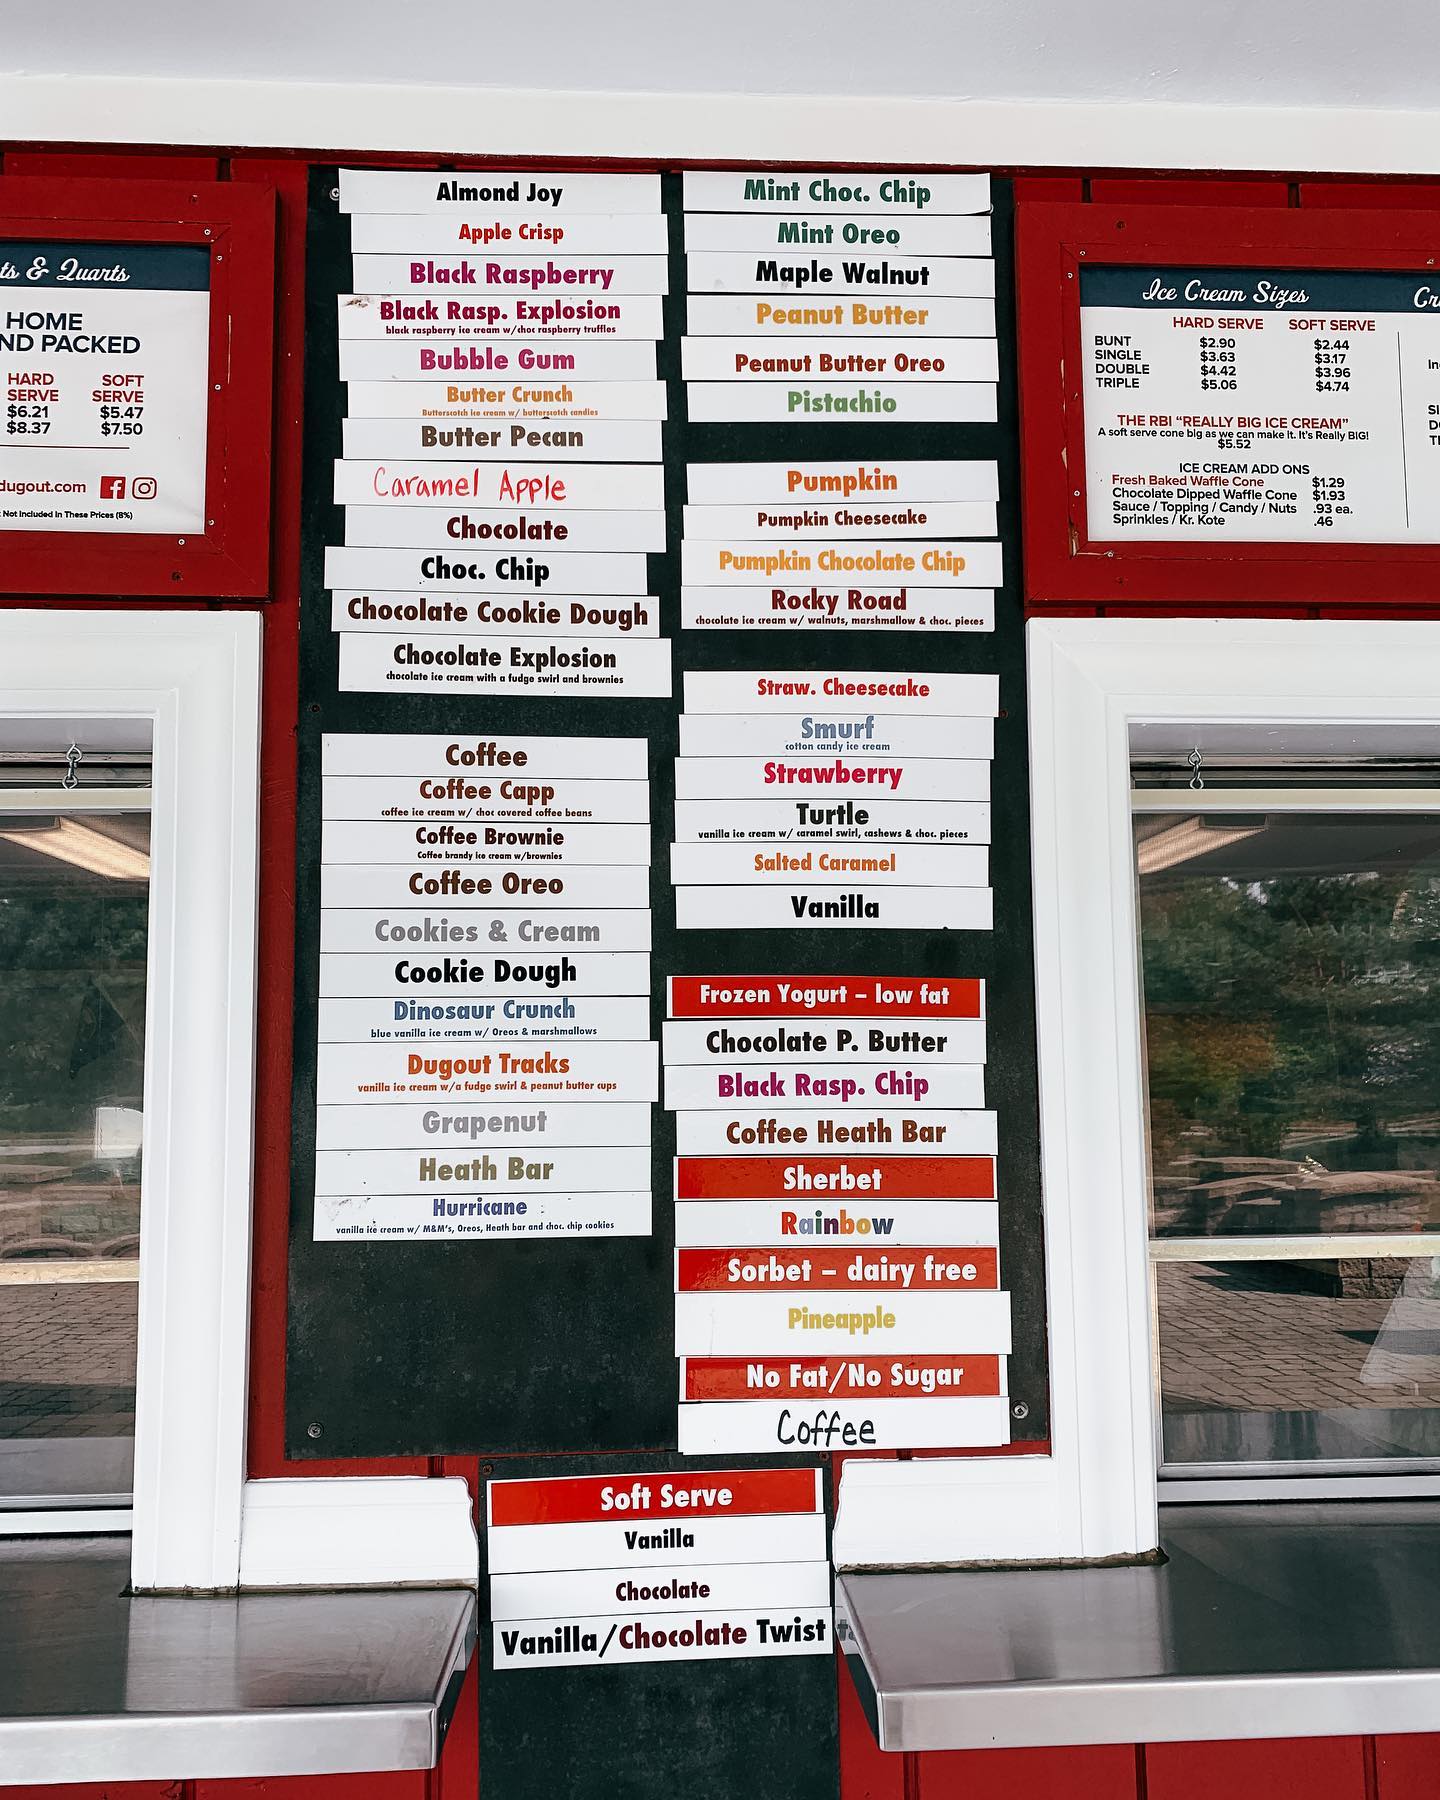 ts & Quarts
HOME
ND PACKED
HARD SERVE
SOFT SERVE
$6.21 $5.47
$8.37 $7.50
dugout.com
Not Included In These Prices (8%)
Almond Joy
Apple Crisp
Black Raspberry
Black Rasp. Explosion
black raspberry ice cream w/choc raspberry truffles
Bubble Gum
Butter Crunch
Butterscotch ice cream w/ butterscotch candies
Butter Pecan
Caramel Apple
Chocolate
Choc. Chip
Chocolate Cookie Dough
Chocolate Explosion
chocolate ice cream with a fudge swirl and brownies
Coffee
Coffee Capp
coffee ice cream w/ choc covered coffee beans
Coffee Brownie
Coffee brandy ice cream w/brownies
Coffee Oreo
Cookies & Cream
Cookie Dough
Dinosaur Crunch
blue vanilla ice cream w/ Oreos & marshmallows
Dugout Tracks
vanilla ice cream w/a fudge swirl & peanut butter cups
Grapenut
Heath Bar
Hurricane
vanilla ice cream w/ M&M's, Oreos, Heath bar and choc. chip cookies
Mint Choc. Chip
Mint Oreo
Maple Walnut
Peanut Butter
Peanut Butter Oreo
Pistachio
Pumpkin
Pumpkin Cheesecake
Pumpkin Chocolate Chip
Rocky Road
chocolate ice cream w/ walnuts, marshmallow & choc. pieces
Straw. Cheesecake
Smurf
cotton candy ice cream
Strawberry
Turtle
vanilla ice cream w/ caramel swirl, cashews & choc. pieces
Salted Caramel
Vanilla
Frozen Yogurt – low fat
Chocolate P. Butter
Black Rasp. Chip
Coffee Heath Bar
Sherbet
Rainbow
Sorbet – dairy free
Pineapple
No Fat/No Sugar
Coffee
Soft Serve
Vanilla
Chocolate
Vanilla/Chocolate Twist
Ice Cream Sizes
HARD SERVE SOFT SERVE
BUNT $2.90 $2.44
SINGLE $3.63 $3.17
DOUBLE $4.42 $3.96
TRIPLE $5.06 $4.74
THE RBI "REALLY BIG ICE CREAM"
A soft serve cone big as we can make it. It's Really BIG!
$5.52
ICE CREAM ADD ONS
Fresh Baked Waffle Cone $1.29
Chocolate Dipped Waffle Cone $1.93
Sauce / Topping / Candy / Nuts .93 ea.
Sprinkles / Kr. Kote .46